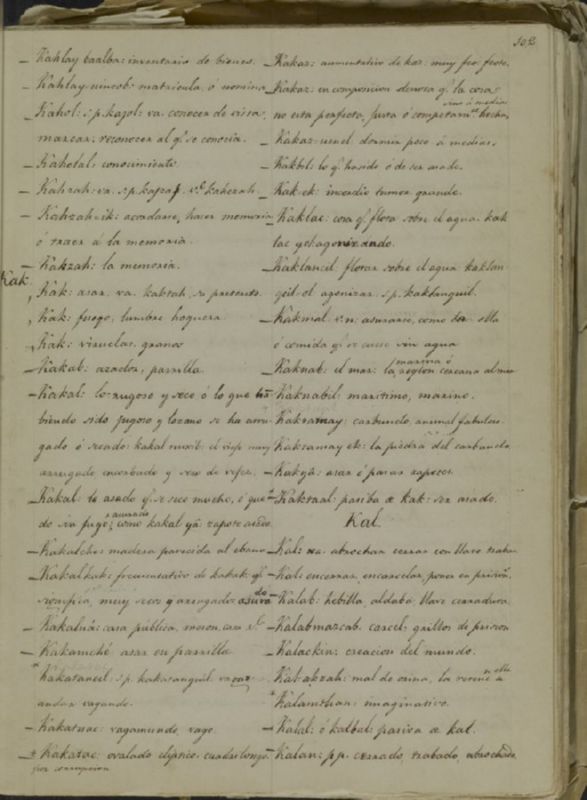 102
– Kahlay baalba: inventario de bienes.
– Kahlay uincob: matricula, ó nomina
– Kahol: s.p. kajol: va. conocer de vista,
marcar: reconocer al q.e se conocia.
– Kaholal: conocimiento.
– Kahzah: va. s.p.
– Kahzah-ik: acordarse, hacer memoria
ó traer á la memoria.
– Kahzah: la memoria.
Kak
Kak: asar, va. kaktah, su preterito.
Kak: fuego, lumbre hoguera
Kak: viruelas, granos
– Kakab: asador, parrilla.
– Kakal: lo rugoso y seco ó lo que ha-
biendo sido jugoso y lozano se ha arru
gado ó secado: kakal nuxib: el viejo muy
arrugado encorbado y seco de vejez.
– Kakal: lo asado q.e se seco mucho, é que-
do sin jugo: como kakal yá: zapote asado.
– Kakalche: madera parecida al ebano
– Kakalkak: frecuentativo de kakak: q.e
muy seco y arrugado, asurado
– Kakalná: casa pública, meson, casa r.l
– Kakamché asar en parrilla
Kakatancil: s.p. kakatanquil vagar
andar vagando.
– Kakatnac: vagamundo, vago
+ Kakatac: ovalado eliptico, cuadrilongo.
por corrupcion
– Kakaz: aumentativo de kaz: muy feo, feote.
– Kakaz: en composicion denota q.e la cosa
no esta perfecta, justa ó competam.te hecha,
sino á medias
Kakaz-uenel: dormir poco á medias.
– Kakbil: lo q.e ha sido ó de ser asado.
– Kak-ek: incordio tumor grande.
– Kaklac: cosa q.e flota sobre el agua. kak
lac y ahogandose.
– Kaklancil: flotar sobre el agua kaklan
cil-ol agonizar. s.p. kaklanquil.
– Kakmal: v.n. asurarse, como la olla
ó comida q.e se cuece sin agua
– Kaknab: el mar: la region cercana al mar
marina ó
– Kaknabil: maritimo, marino.
– Kaktamay: carbunclo, animal fabuloso
– Kaktamay ek: la piedra del carbunclo
– Kakyá: asar ó pasar zapotes.
– Kaktaal: pasiba de kak: ser asado.
Kal.
– Kal: va. abrochar cerrar con llave trabar
– Kal: encerrar, encarcelar, poner en prision
– Kalab: hebilla, aldaba, llave cerradura
– Kalabmazcab. carcel, grillos de prision
– Kalackin: creacion del mundo.
– Kalakzah: mal de orina, la retencion de ella
+ Kalamthan: imaginativo.
– Kalal: ó kalbal: pasiva de kal.
– Kalan: p.p. cerrado, trabado, abrochado.